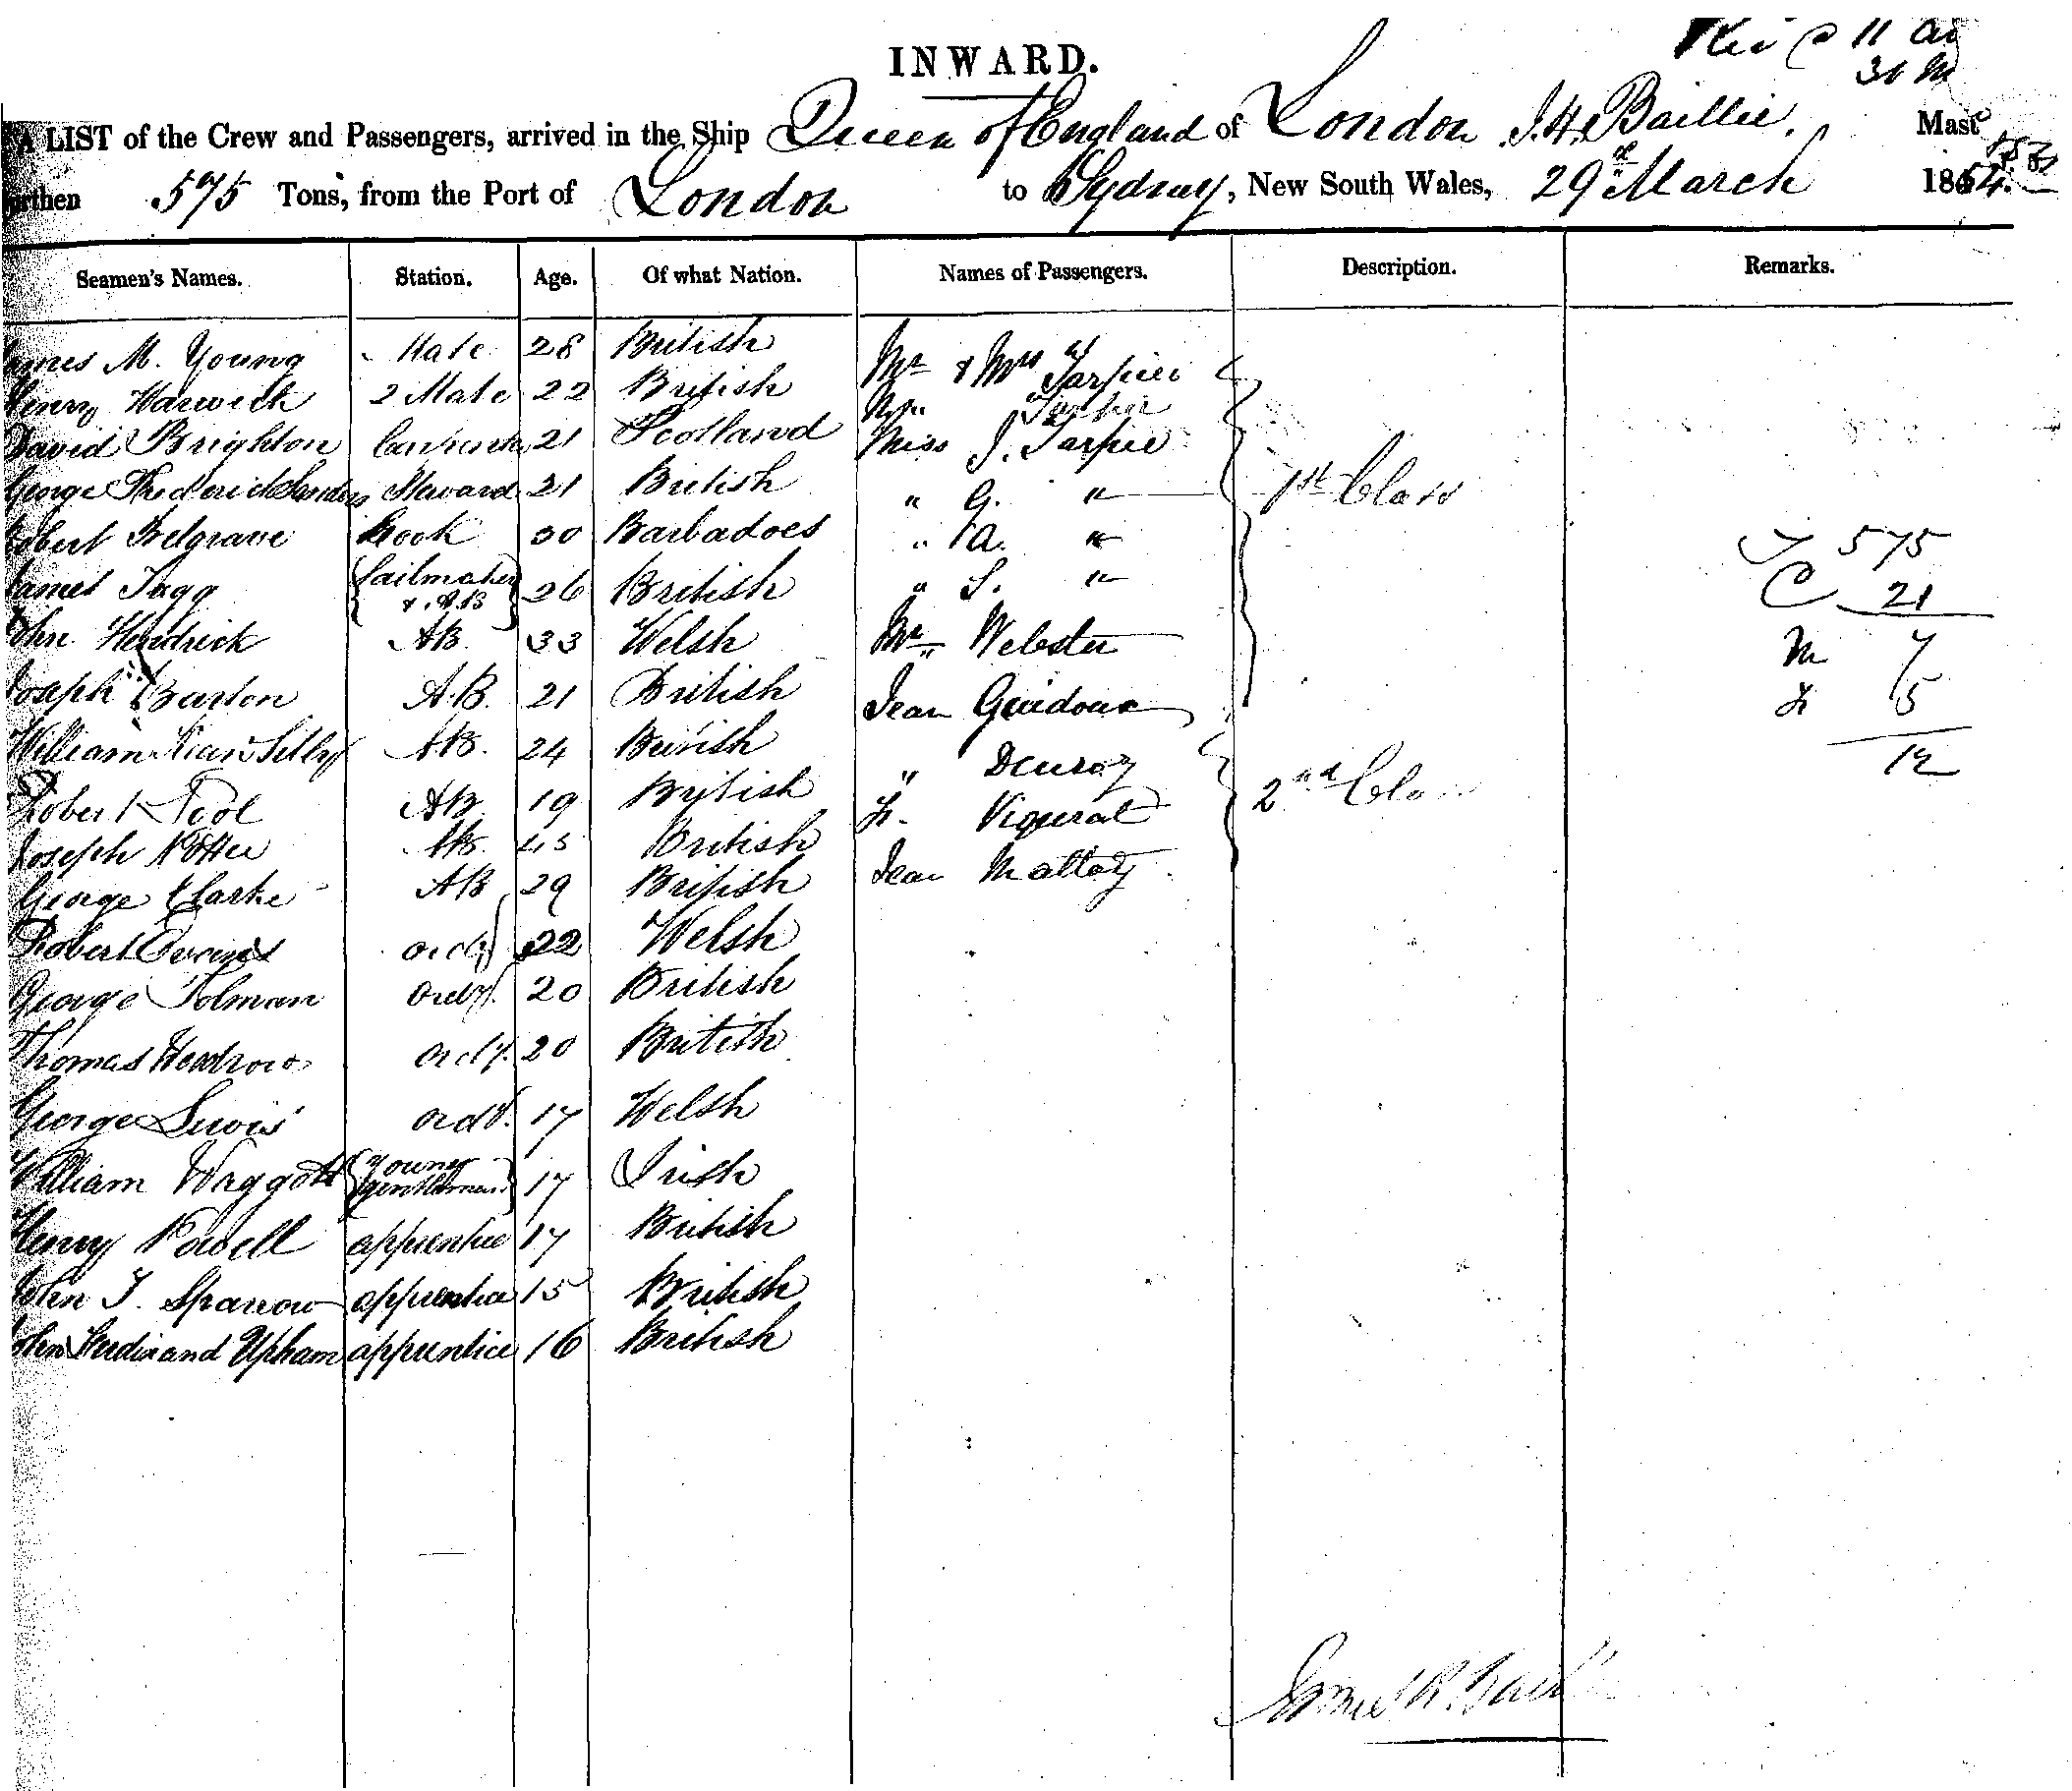 INWARD.
11
A LIST of the Crew and Passengers, arrived in the Ship Queen of England of London J. H. Baillie, Mast
rthen 575 Tons, from the Port of London to Sydney, New South Wales, 29th March 1854.
Seamen's Names. Station. Age. Of what Nation. Names of Passengers. Description. Remarks.
James M. Young Mate 28 British Mr & Mrs
Henry Warwick 2 Mate 22 British
David Brighton Carpenter 21 Scotland Miss J. Tarpie
George Frederick Sanders Steward 21 British " G. " 1st Class
Robert Belgrave Cook 30 Barbadoes " A. " 575
James Tagg Sailmaker & A.B 26 British " S. " C 21
John Hendrick AB. 33 Welsh Mr Webster M 7
Joseph Barton A.B. 21 British Jean F 5
William Selby AB. 24 British " 12
Robert AB 19 British 2nd Class
Joseph AB. British Jean
George Clarke AB 29 British
Robert Evans Ordy 22 Welsh
George Tolman Ordy. 20 British
Thomas Ordy. 20 British
George Lewis Ordy. 17 Welsh
William Waggott Young Gentleman 17 Irish
Henry Powell apprentice 17 British
John T. Sparrow apprentice 15 British
John Ferdinand Upham apprentice 16 British